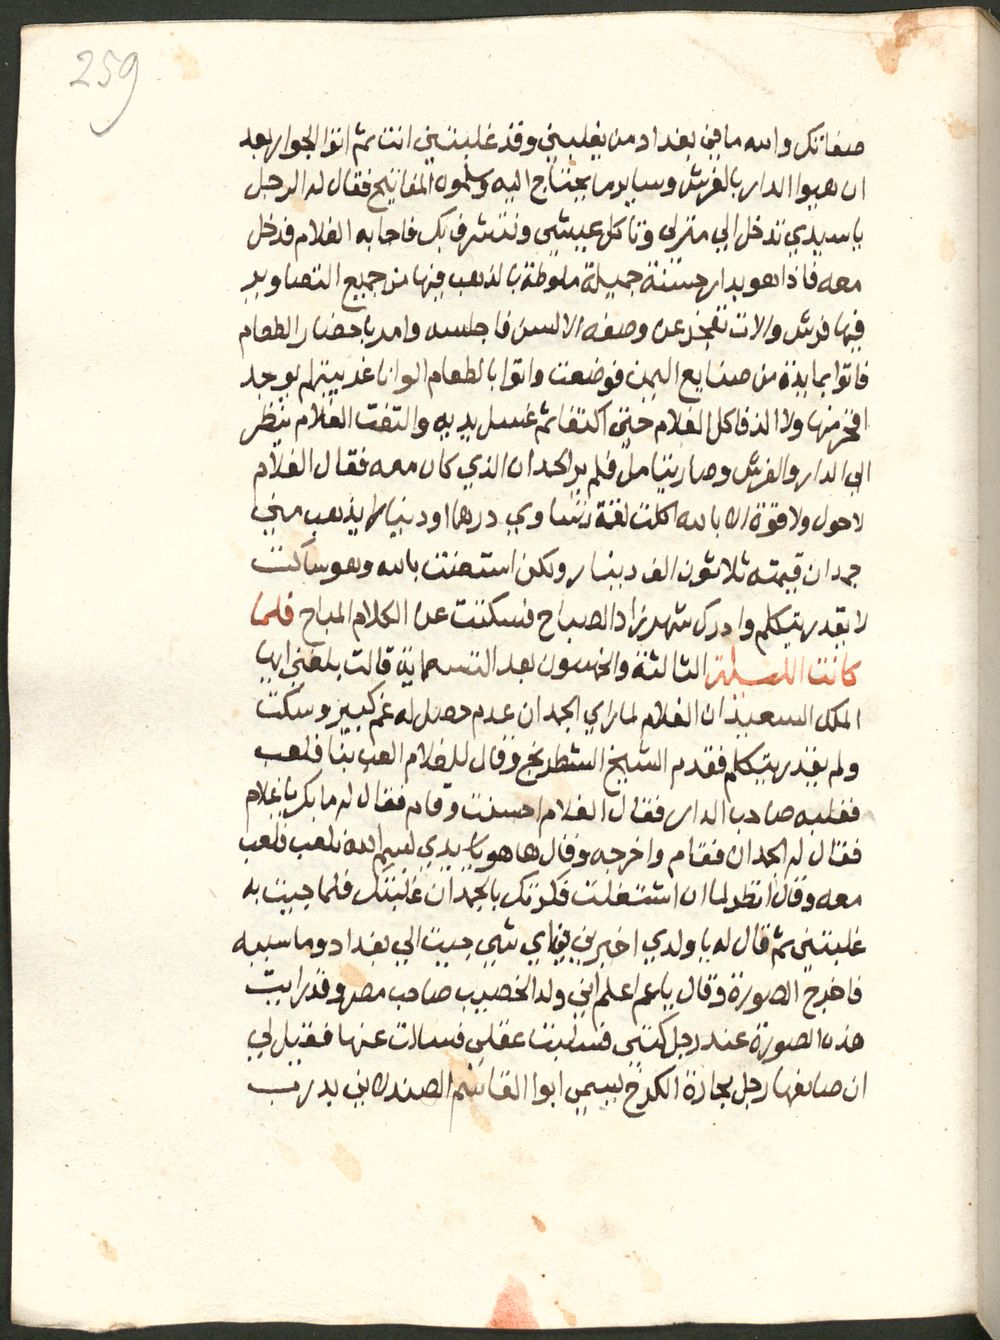 259
صفاتك والله ما في بغداد من يغلبني وقد غلبتني انت ثم اتوا الجوار بعد
ان هيوا الدار بالفرش وساير ما يحتاج اليه وسلموه المفاتيح فقال له الرجل
يا سيدي تدخل الي منزلي وتاكل عيشي ونتشرف بك فاجابه الغلام فدخل
معه فاذا هو بدار حسنة جميلة ملوطة بالذهب فيها من جميع التصاوير
فيها فرش والات تعجز عن وصفه الالسن فاجلسه وامر باحضار الطعام
فاتوا بمايدة من صنايع اليمن فوضعت واتوا بالطعام الوانا غريبة لم يوجد
افخر منها ولا الذ فاكل الغلام حتي اكتفا ثم غسل يديه والتفت الغلام ينظر
الي الدار والفرش وصار يتامل فلم ير الجمدان الذي كان معه فقال الغلام
لا حول ولا قوة الا بالله اكلت لقمة تساوي درهما او دينارا يذهب مني
جمدان قيمته ثلاثون الف دينار ولكن استعنت بالله وهو ساكت
لا يقدر يتكلم وادرك شهرزاد الصباح فسكتت عن الكلام المباح فلما
كانت الليلة الثالثة والخمسون بعد التسعماية قالت بلغني ايها
الملك السعيد ان الغلام لما راي الجمدان عدم حصل له غم كبير وسكت
ولم يقدر يتكلم فقدم الشيخ الشطرنج وقال للغلام العب بنا فلعب
فغلبه صاحب الدار فقال الغلام احسنت وقام فقال له ما بك يا غلام
فقال له الجمدان فقام واخرجه وقال ها هو يا سيدي بسم الله نلعب فلعب
معه وقال انظر لما ان اشتغلت فكرتك بالجمدان غلبتك فلما جيت به
غلبتني ثم قال له يا ولدي اخبرني في اي شي جيت الي بغداد وما سببه
فاخرج الصورة وقال يا عم اعلم اني ولد الخصيب صاحب مصر وقد رايت
هذه الصورة عند رجل كتبي فسلبت عقلي فسالت عنها فقيل لي
ان صانعها رجل بحارة الكرخ يسمي ابوا القاسم الصندلاني بدرب